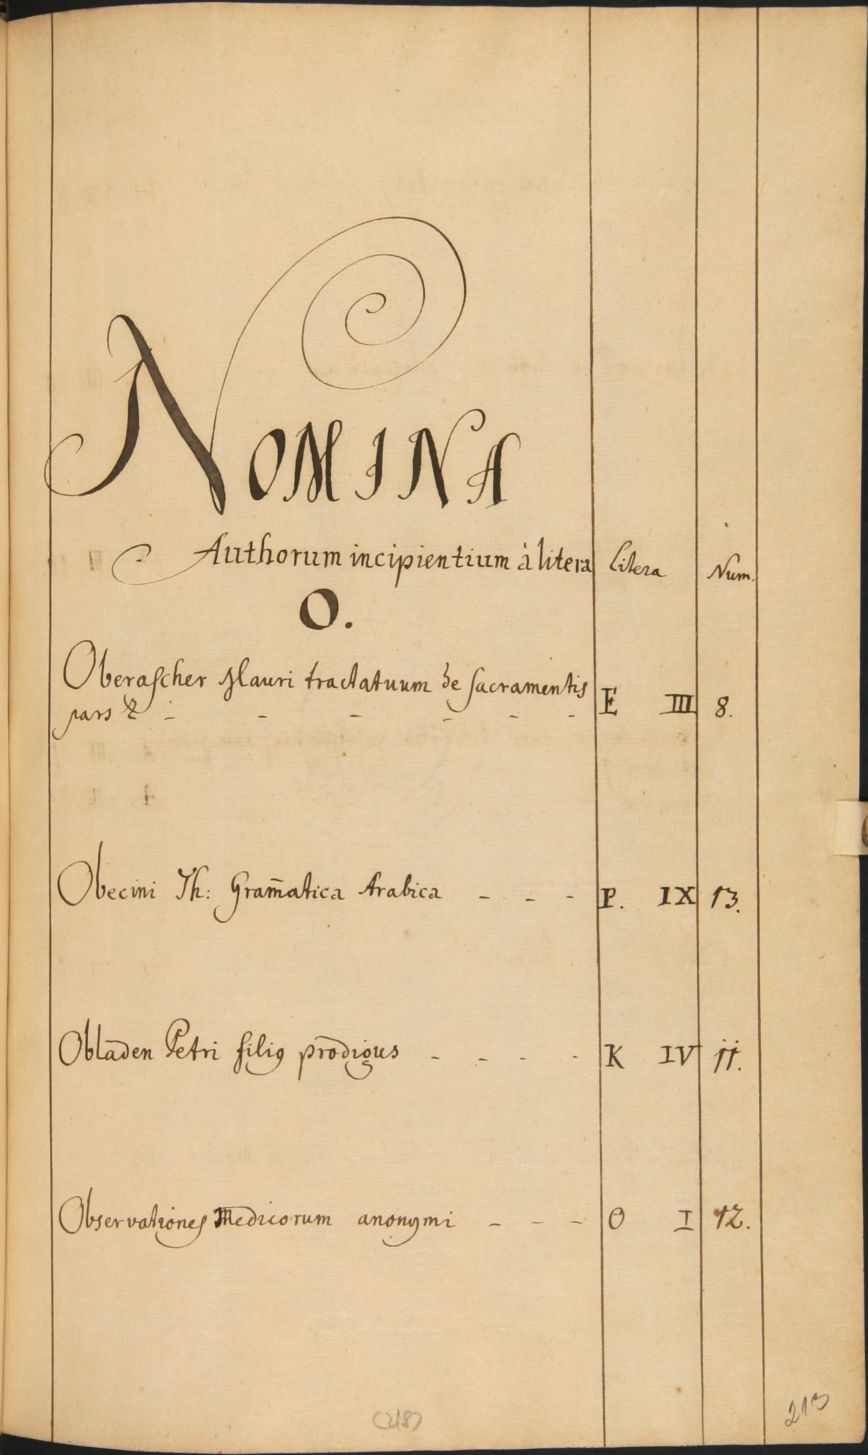 NOMINA
Authorum incipientium à litera Litera Num.
O.
Oberascher Mauri tractatuum de sacramentis
pars 2 - - - - - - E III 8.
Obecini Th: Gram̄atica Arabica - - - P. IX 13.
Obladen Petri filiꝰ prodigus - - - - K IV 11.
Observationes Medicorum anonymi - - - O I 12.
(218)
213